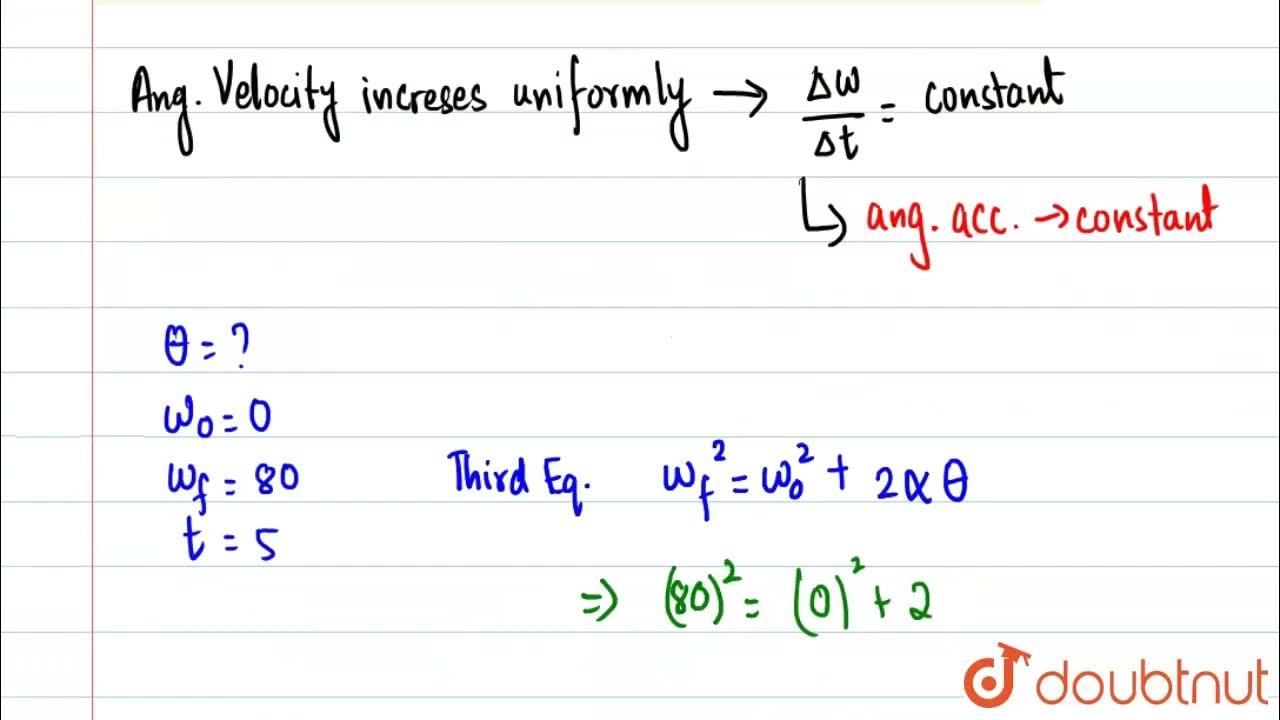 Ang. Velocity increses uniformly → Δω/Δt = constant
↳ ang. acc. → constant
θ = ?
ω₀ = 0
ω_f = 80
t = 5
Third Eq. ω_f² = ω₀² + 2αθ
=> (80)² = (0)² + 2
doubtnut